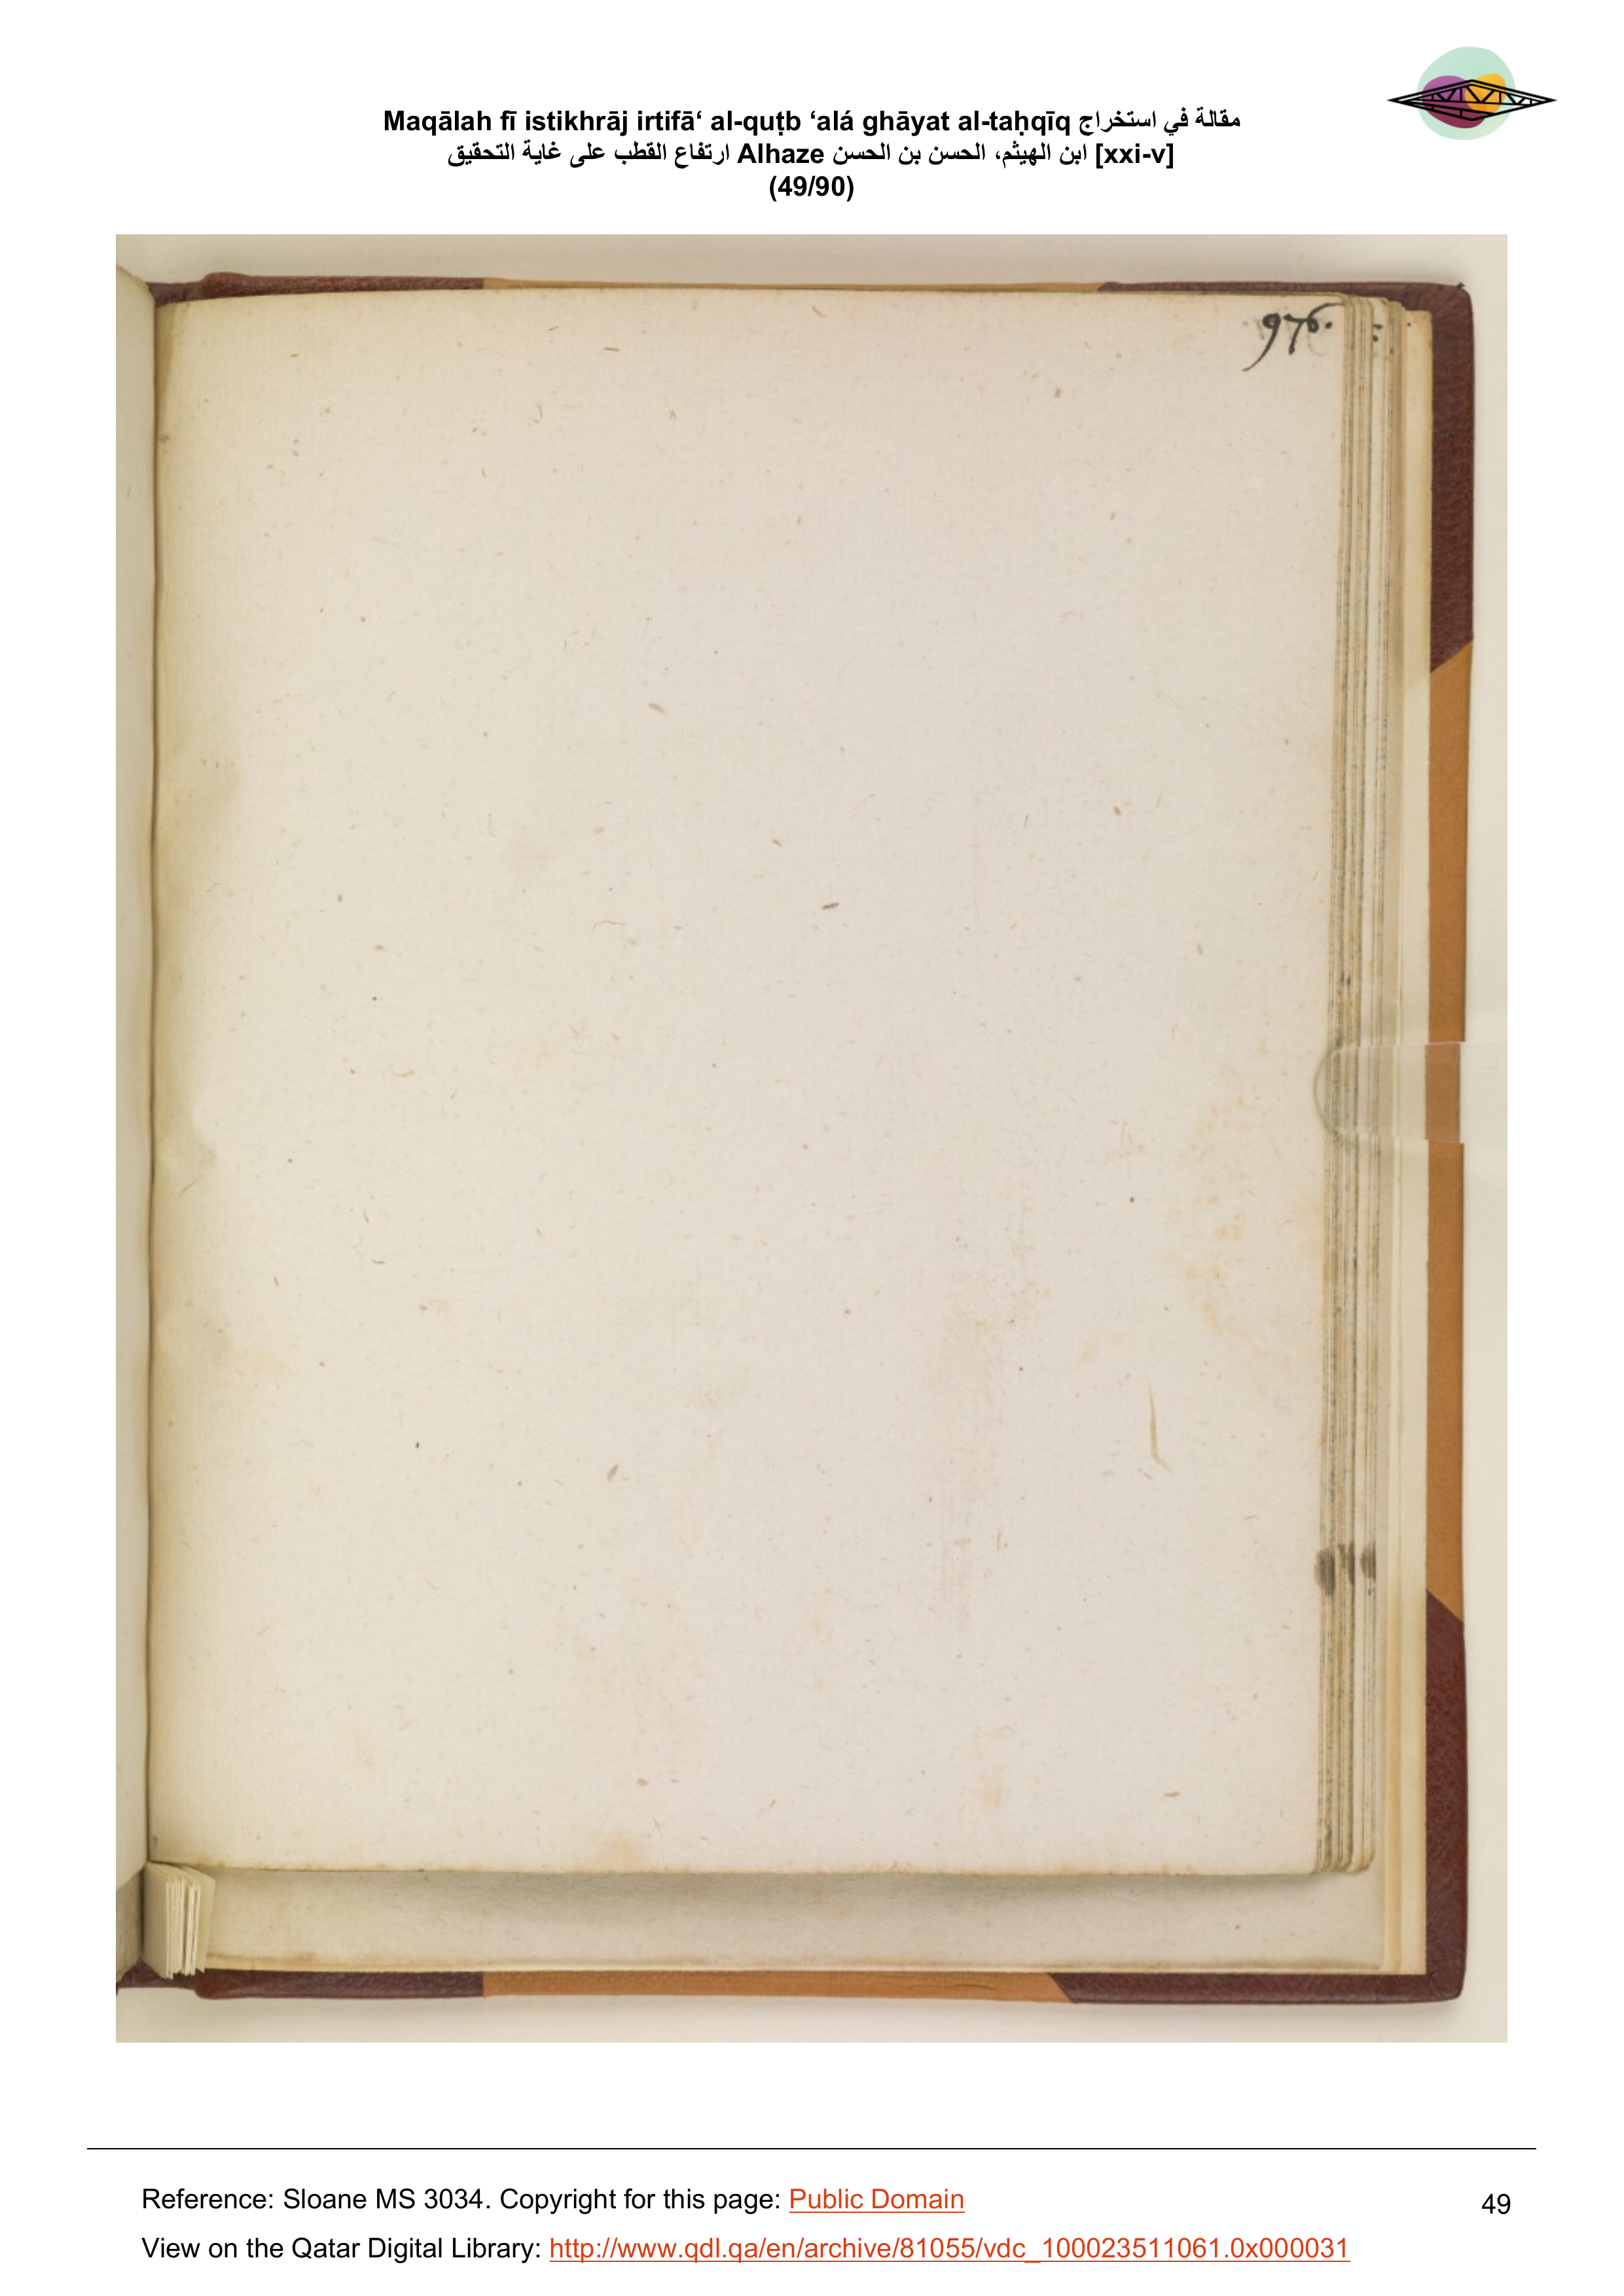 Maqālah fī istikhrāj irtifā‘ al-quṭb ‘alá ghāyat al-taḥqīq مقالة في استخراج
ارتفاع القطب على غاية التحقيق Alhaze ابن الهيثم، الحسن بن الحسن [xxi-v]
(49/90)
976.
Reference: Sloane MS 3034. Copyright for this page: Public Domain
49
View on the Qatar Digital Library: http://www.qdl.qa/en/archive/81055/vdc_100023511061.0x000031